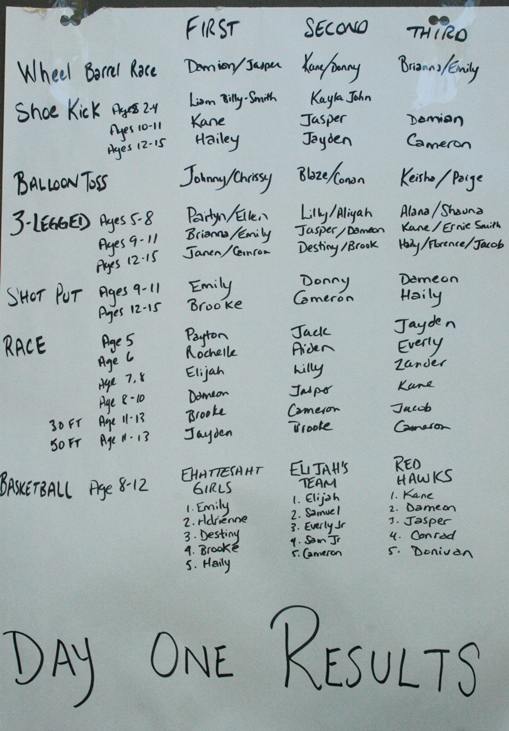 FIRST SECOND THIRD
Wheel Barrel Race Damion/Jasper Kane/Donny Brianna/Emily
Shoe Kick Ages 2-4 Liam Billy-Smith Kayla John
Ages 10-11 Kane Jasper Damian
Ages 12-15 Hailey Jayden Cameron
BALLOON TOSS Johnny/Chrissy Blaze/Conan Keisha/Paige
3-LEGGED Ages 5-8 Partyn/Ellen Lilly/Aliyah Alana/Shauna
Ages 9-11 Brianna/Emily Jasper/Dameon Kane/Ernie Smith
Ages 12-15 Destiny/Brook Haly/Florence/Jacob
SHOT PUT Ages 9-11 Emily Donny Dameon
Ages 12-15 Brooke Cameron Haily
RACE Age 5 Payton Jack Jayden
Age 6 Rochelle Aiden Everly
Age 7,8 Elijah Lilly Zander
Age 8-10 Dameon Jasper Kane
30 FT Age 11-13 Brooke Cameron Jacob
50 FT Age 11-13 Jayden Brooke Cameron
BASKETBALL Age 8-12 EHATTESAHT GIRLS ELIJAH'S TEAM RED HAWKS
1. Emily 1. Elijah 1. Kane
2. Adrienne 2. Samuel 2. Dameon
3. Destiny 3. Everly Jr 3. Jasper
4. Brooke 4. Sam Jr 4. Conrad
5. Haily 5. Cameron 5. Donivan
DAY ONE RESULTS